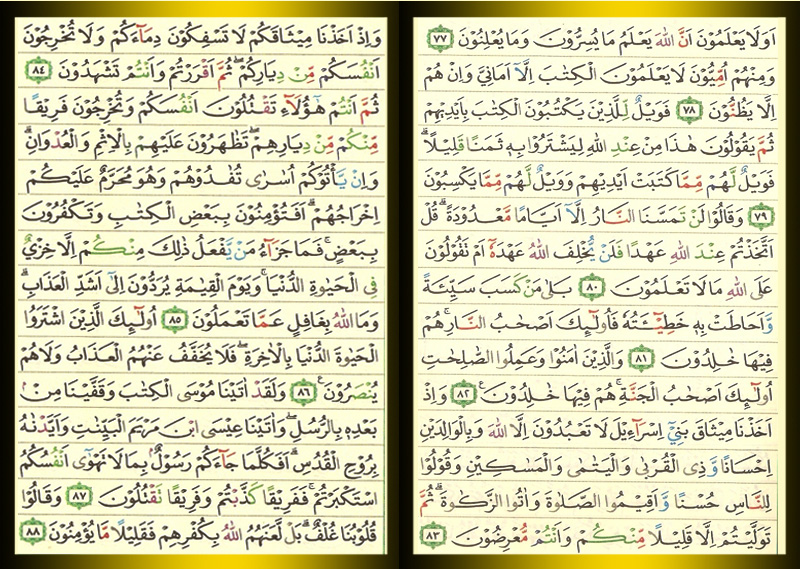 اَوَلَا يَعْلَمُوْنَ اَنَّ اللهَ يَعْلَمُ مَا يُسِرُّوْنَ وَمَا يُعْلِنُوْنَ ٧٧
وَمِنْهُمْ اُمِّيُّوْنَ لَا يَعْلَمُوْنَ الْكِتٰبَ اِلَّآ اَمَانِيَّ وَاِنْ هُمْ
اِلَّا يَظُنُّوْنَ ٧٨ فَوَيْلٌ لِّلَّذِيْنَ يَكْتُبُوْنَ الْكِتٰبَ بِاَيْدِيْهِمْ
ثُمَّ يَقُوْلُوْنَ هٰذَا مِنْ عِنْدِ اللهِ لِيَشْتَرُوْا بِهٖ ثَمَنًا قَلِيْلًاۗ
فَوَيْلٌ لَّهُمْ مِّمَّا كَتَبَتْ اَيْدِيْهِمْ وَوَيْلٌ لَّهُمْ مِّمَّا يَكْسِبُوْنَ
٧٩ وَقَالُوْا لَنْ تَمَسَّنَا النَّارُ اِلَّآ اَيَّامًا مَّعْدُوْدَةًۗ قُلْ
اَتَّخَذْتُمْ عِنْدَ اللهِ عَهْدًا فَلَنْ يُّخْلِفَ اللهُ عَهْدَهٗٓ اَمْ تَقُوْلُوْنَ
عَلَى اللهِ مَا لَا تَعْلَمُوْنَ ٨٠ بَلٰى مَنْ كَسَبَ سَيِّئَةً
وَّاَحَاطَتْ بِهٖ خَطِيْۤـَٔتُهٗ فَاُولٰۤىِٕكَ اَصْحٰبُ النَّارِۚ هُمْ
فِيْهَا خٰلِدُوْنَ ٨١ وَالَّذِيْنَ اٰمَنُوْا وَعَمِلُوا الصّٰلِحٰتِ
اُولٰۤىِٕكَ اَصْحٰبُ الْجَنَّةِۚ هُمْ فِيْهَا خٰلِدُوْنَ ࣖ ٨٢ وَاِذْ
اَخَذْنَا مِيْثَاقَ بَنِيْٓ اِسْرَاۤءِيْلَ لَا تَعْبُدُوْنَ اِلَّا اللهَ وَبِالْوَالِدَيْنِ
اِحْسَانًا وَّذِى الْقُرْبٰى وَالْيَتٰمٰى وَالْمَسٰكِيْنِ وَقُوْلُوْا
لِلنَّاسِ حُسْنًا وَّاَقِيْمُوا الصَّلٰوةَ وَاٰتُوا الزَّكٰوةَۗ ثُمَّ
تَوَلَّيْتُمْ اِلَّا قَلِيْلًا مِّنْكُمْ وَاَنْتُمْ مُّعْرِضُوْنَ ٨٣
وَاِذْ اَخَذْنَا مِيْثَاقَكُمْ لَا تَسْفِكُوْنَ دِمَاۤءَكُمْ وَلَا تُخْرِجُوْنَ
اَنْفُسَكُمْ مِّنْ دِيَارِكُمْۖ ثُمَّ اَقْرَرْتُمْ وَاَنْتُمْ تَشْهَدُوْنَ ٨٤
ثُمَّ اَنْتُمْ هٰٓؤُلَاۤءِ تَقْتُلُوْنَ اَنْفُسَكُمْ وَتُخْرِجُوْنَ فَرِيْقًا
مِّنْكُمْ مِّنْ دِيَارِهِمْۖ تَظٰهَرُوْنَ عَلَيْهِمْ بِالْاِثْمِ وَالْعُدْوَانِۗ
وَاِنْ يَّأْتُوْكُمْ اُسٰرٰى تُفٰدُوْهُمْ وَهُوَ مُحَرَّمٌ عَلَيْكُمْ
اِخْرَاجُهُمْۗ اَفَتُؤْمِنُوْنَ بِبَعْضِ الْكِتٰبِ وَتَكْفُرُوْنَ
بِبَعْضٍۚ فَمَا جَزَاۤءُ مَنْ يَّفْعَلُ ذٰلِكَ مِنْكُمْ اِلَّا خِزْيٌ
فِى الْحَيٰوةِ الدُّنْيَاۚ وَيَوْمَ الْقِيٰمَةِ يُرَدُّوْنَ اِلٰٓى اَشَدِّ الْعَذَابِۗ
وَمَا اللهُ بِغَافِلٍ عَمَّا تَعْمَلُوْنَ ٨٥ اُولٰۤىِٕكَ الَّذِيْنَ اشْتَرَوُا
الْحَيٰوةَ الدُّنْيَا بِالْاٰخِرَةِۖ فَلَا يُخَفَّفُ عَنْهُمُ الْعَذَابُ وَلَا هُمْ
يُنْصَرُوْنَ ࣖ ٨٦ وَلَقَدْ اٰتَيْنَا مُوْسَى الْكِتٰبَ وَقَفَّيْنَا مِنْۢ
بَعْدِهٖ بِالرُّسُلِۖ وَاٰتَيْنَا عِيْسَى ابْنَ مَرْيَمَ الْبَيِّنٰتِ وَاَيَّدْنٰهُ
بِرُوْحِ الْقُدُسِۗ اَفَكُلَّمَا جَاۤءَكُمْ رَسُوْلٌۢ بِمَا لَا تَهْوٰٓى اَنْفُسُكُمُ
اسْتَكْبَرْتُمْۚ فَفَرِيْقًا كَذَّبْتُمْ وَفَرِيْقًا تَقْتُلُوْنَ ٨٧ وَقَالُوْا
قُلُوْبُنَا غُلْفٌۗ بَلْ لَّعَنَهُمُ اللهُ بِكُفْرِهِمْ فَقَلِيْلًا مَّا يُؤْمِنُوْنَ ٨٨